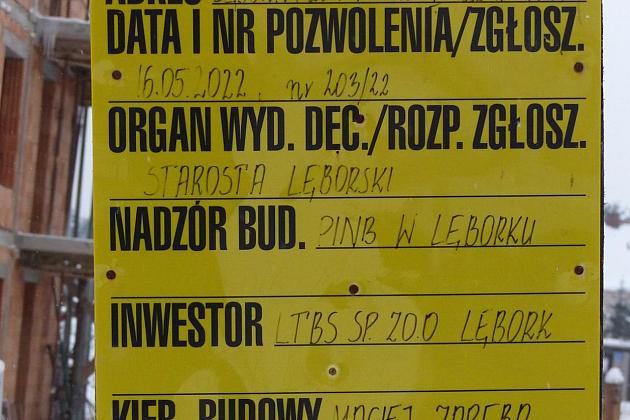 ADRES
DATA I NR POZWOLENIA/ZGŁOSZ.
16.05.2022, nr 203/22
ORGAN WYD. DEC./ROZP. ZGŁOSZ.
STAROSTA LĘBORSKI
NADZÓR BUD. PINB W LĘBORKU
INWESTOR LTBS SP. ZO.O LĘBORK
KIER. BUDOWY MACIEJ ZARĘBA